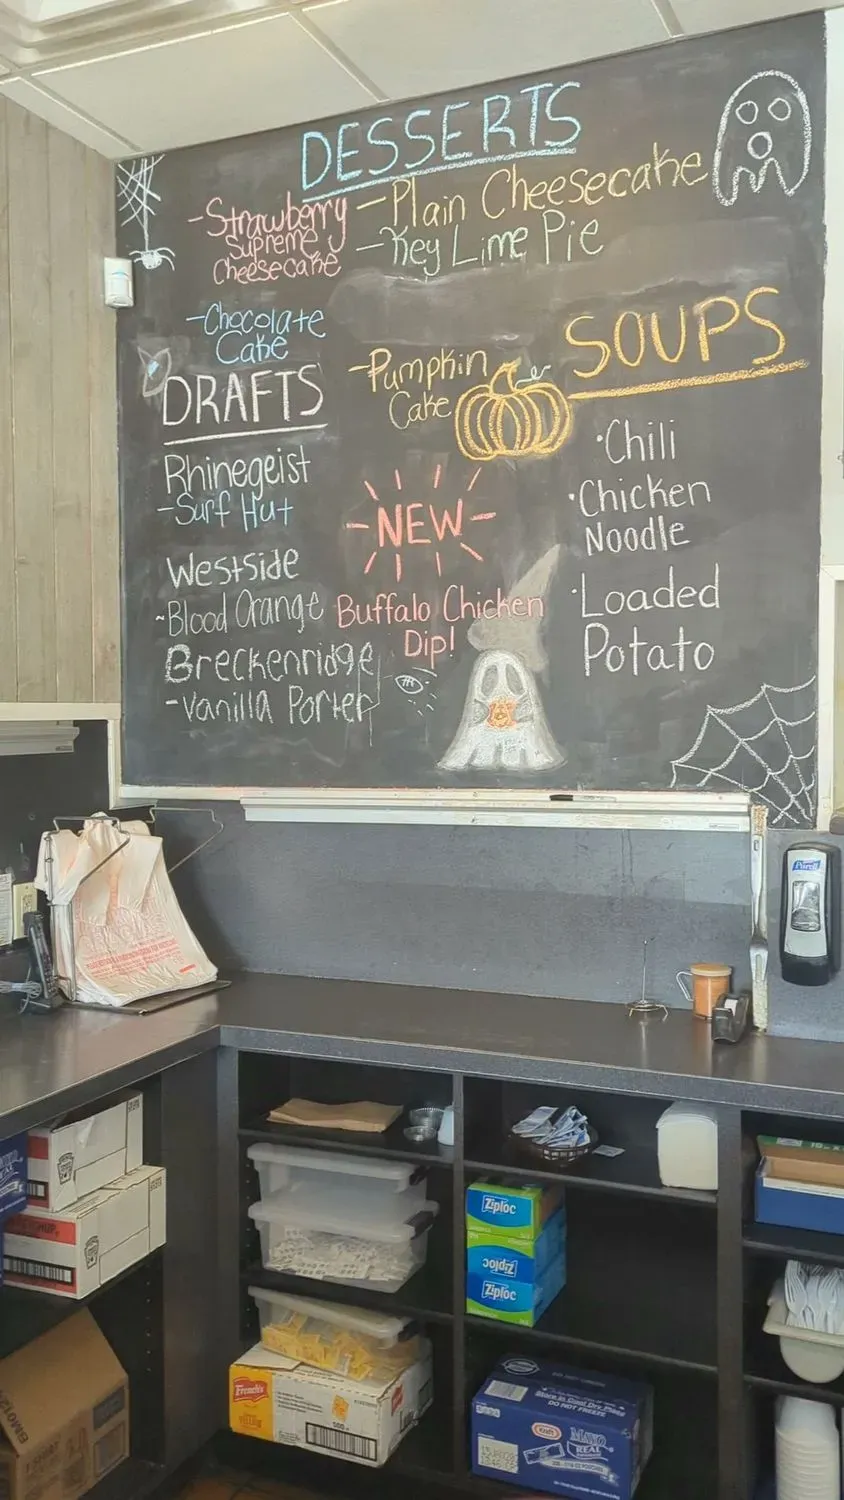 DESSERTS
-Strawberry
Supreme
Cheesecake
-Plain Cheesecake
-Key Lime Pie
-Chocolate
Cake
-Pumpkin
Cake
SOUPS
•Chili
•Chicken
Noodle
•Loaded
Potato
DRAFTS
Rhinegeist
-Surf Hut
Westside
-Blood Orange
Breckenridge
-Vanilla Porter
-NEW-
Buffalo Chicken
Dip!
Purell
Ziploc
Ziploc
Ziploc
KETCHUP
French's
Store in Cool Dry Place
DO NOT FREEZE
Kraft
MAYO
REAL